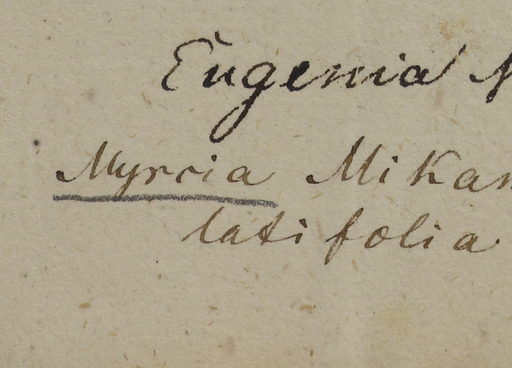 Eugenia
Myrcia Mikan
latifolia